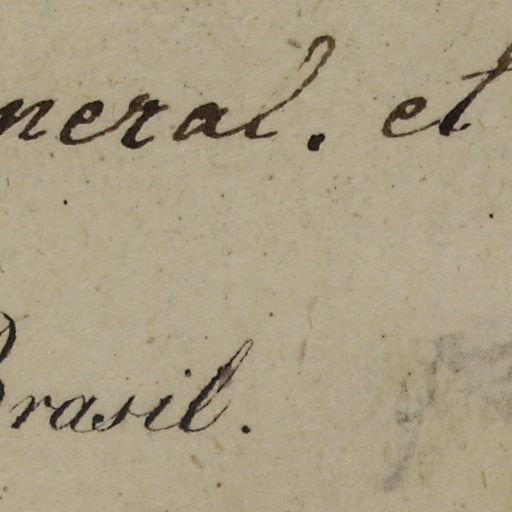 neral. et
Brasil.